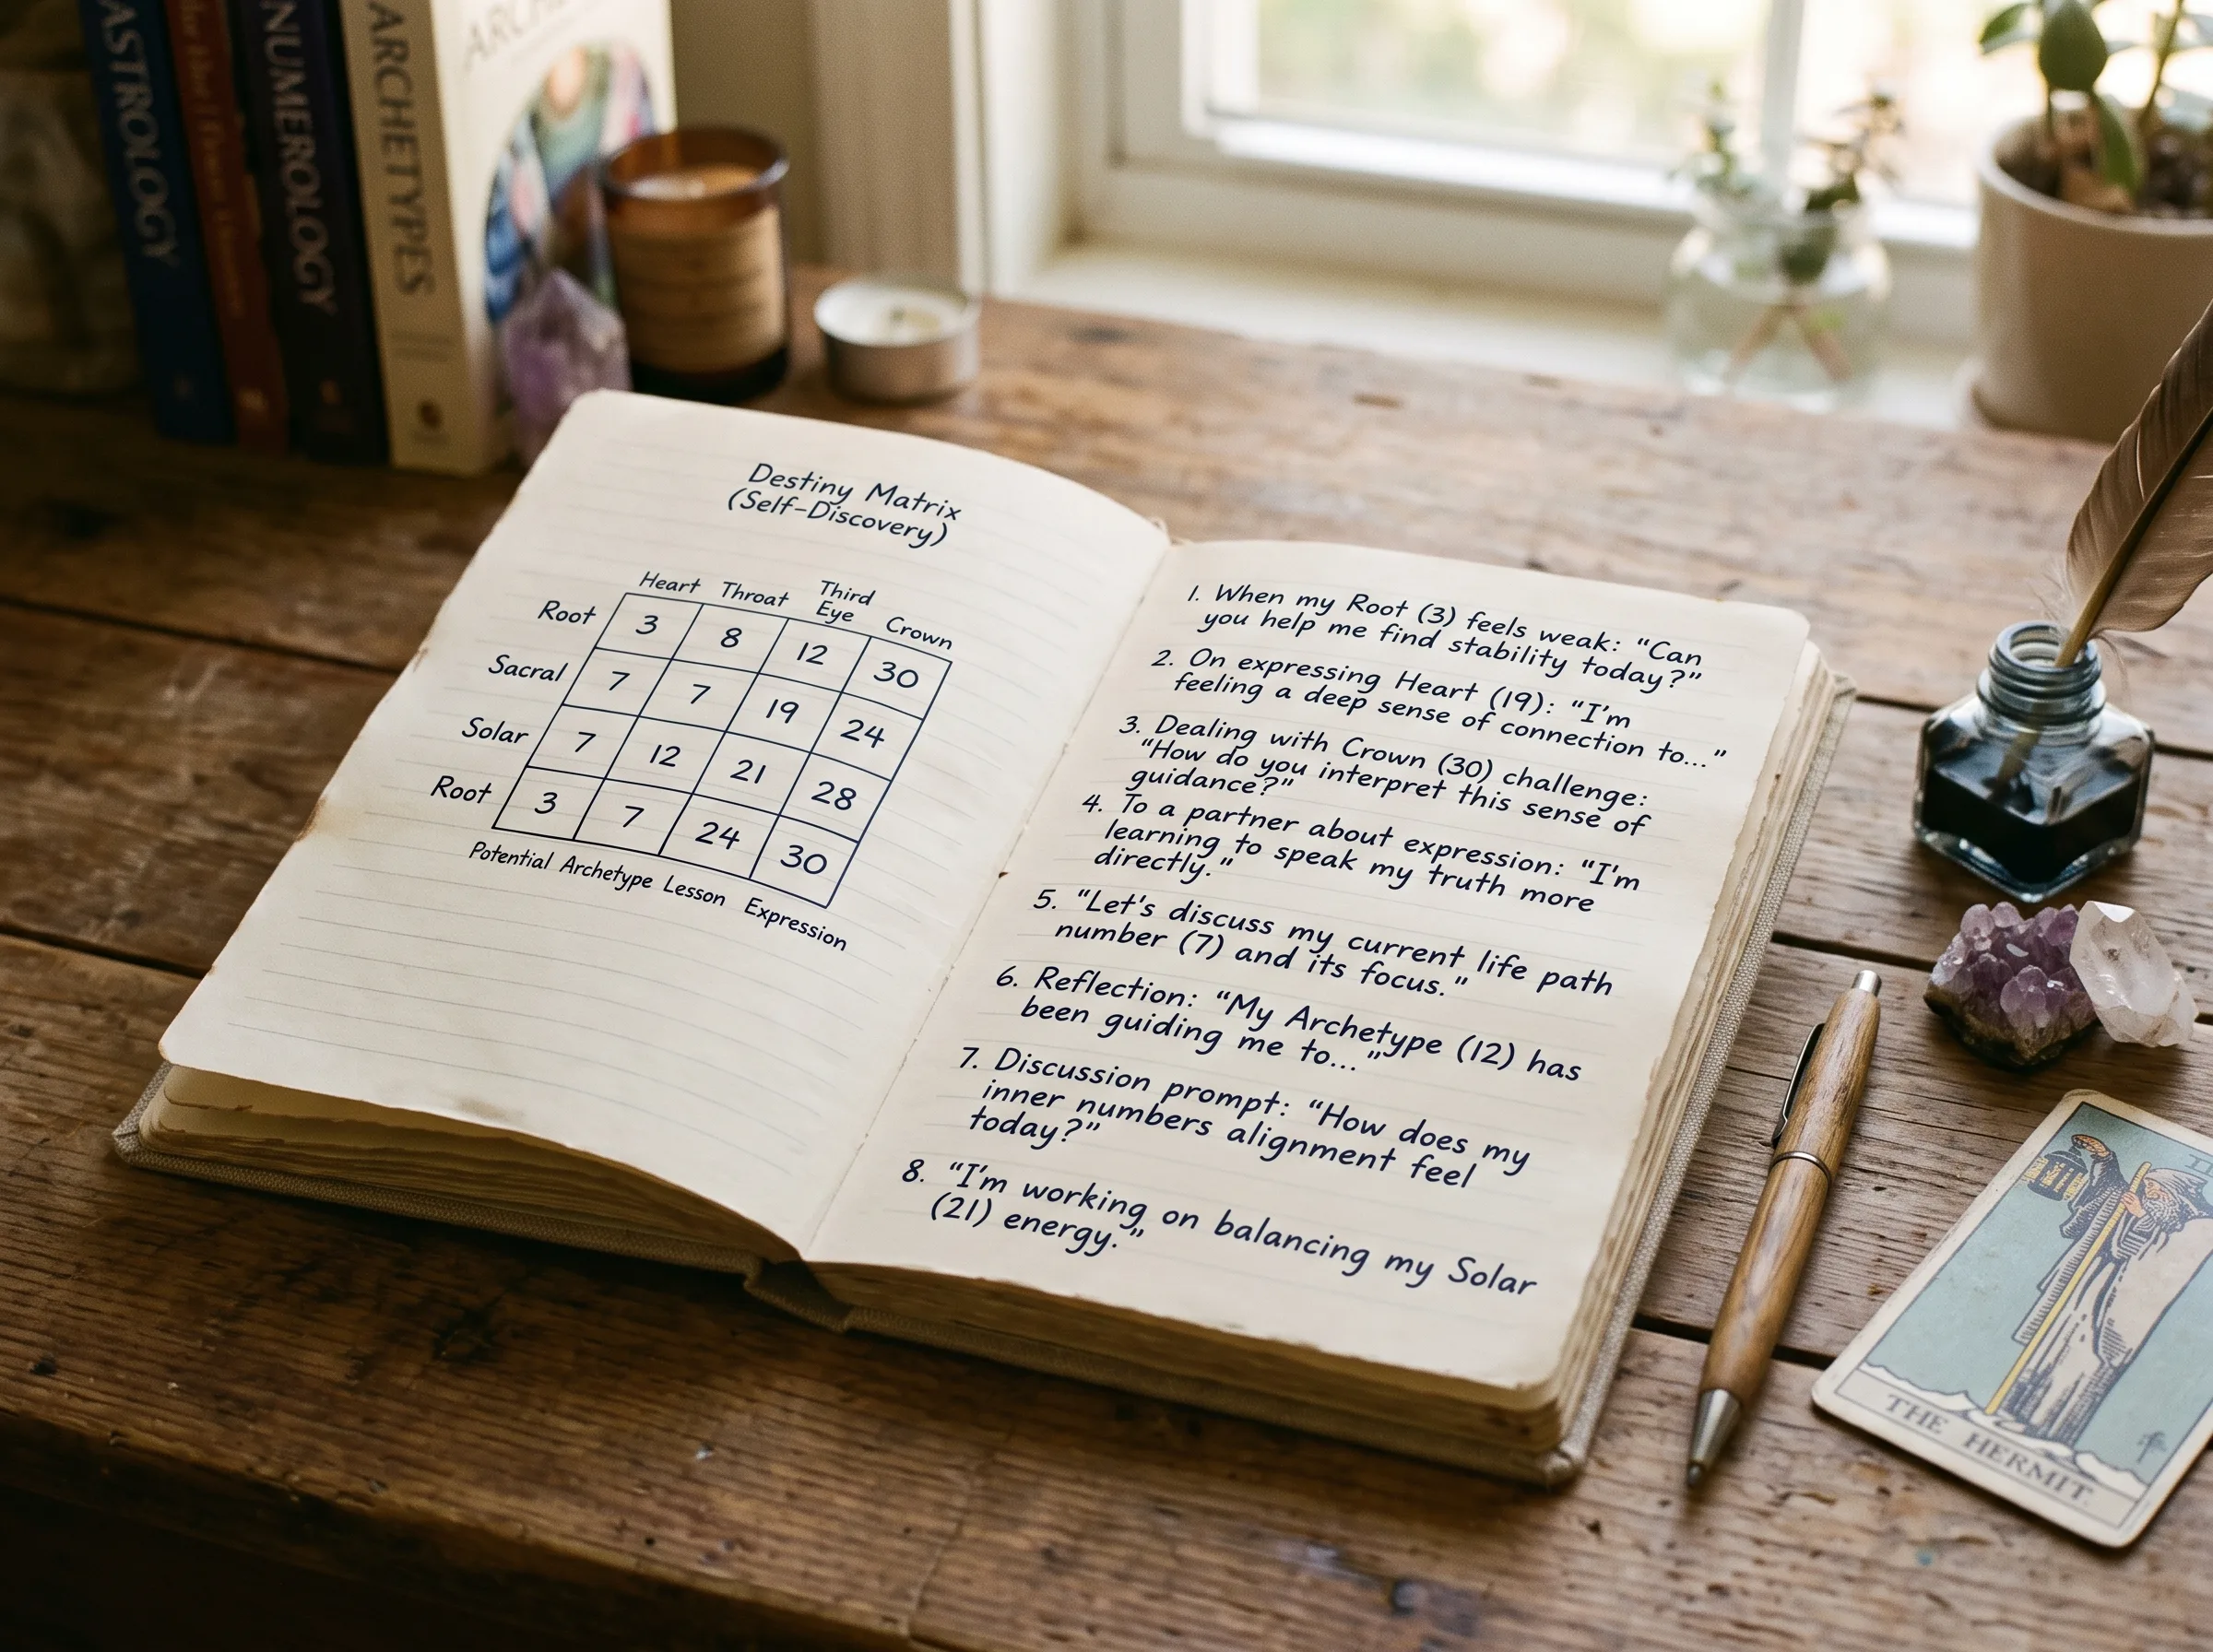 ASTROLOGY
NUMEROLOGY
ARCHETYPES
Destiny Matrix
(Self-Discovery)
Heart Throat Third Eye Crown
Root 3 8 12 30
Sacral 7 7 19 24
Solar 7 12 21 28
Root 3 7 24 30
Potential Archetype Lesson Expression
1. When my Root (3) feels weak: "Can
you help me find stability today?"
2. On expressing Heart (19): "I'm
feeling a deep sense of connection to..."
3. Dealing with Crown (30) challenge:
"How do you interpret this sense of
guidance?"
4. To a partner about expression: "I'm
learning to speak my truth more
directly."
5. "Let's discuss my current life path
number (7) and its focus."
6. Reflection: "My Archetype (12) has
been guiding me to..."
7. Discussion prompt: "How does my
inner numbers alignment feel
today?"
8. "I'm working on balancing my Solar
(21) energy."
THE HERMIT.